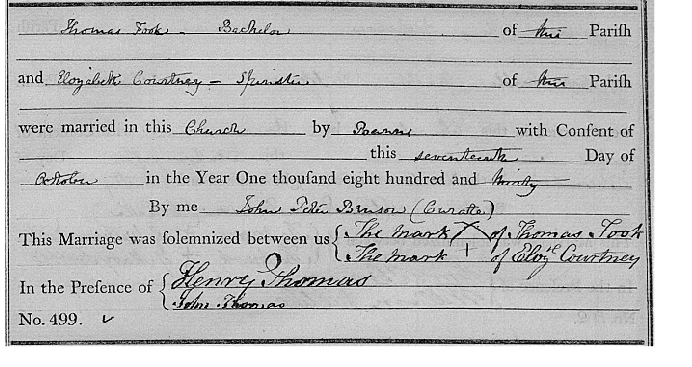 Thomas Took - Bachelor of this Pariſh
and Elozabeth Courtney - Spinster of this Pariſh
were married in this Church by Banns with Conſent of
this seventeenth Day of
October in the Year One thouſand eight hundred and
By me John Peter Benson (Curate)
This Marriage was ſolemnized between us { The mark X of Thomas Took
The mark + of Elozth Courtney
In the Preſence of { Henry Thomas
John Thomas
No. 499.